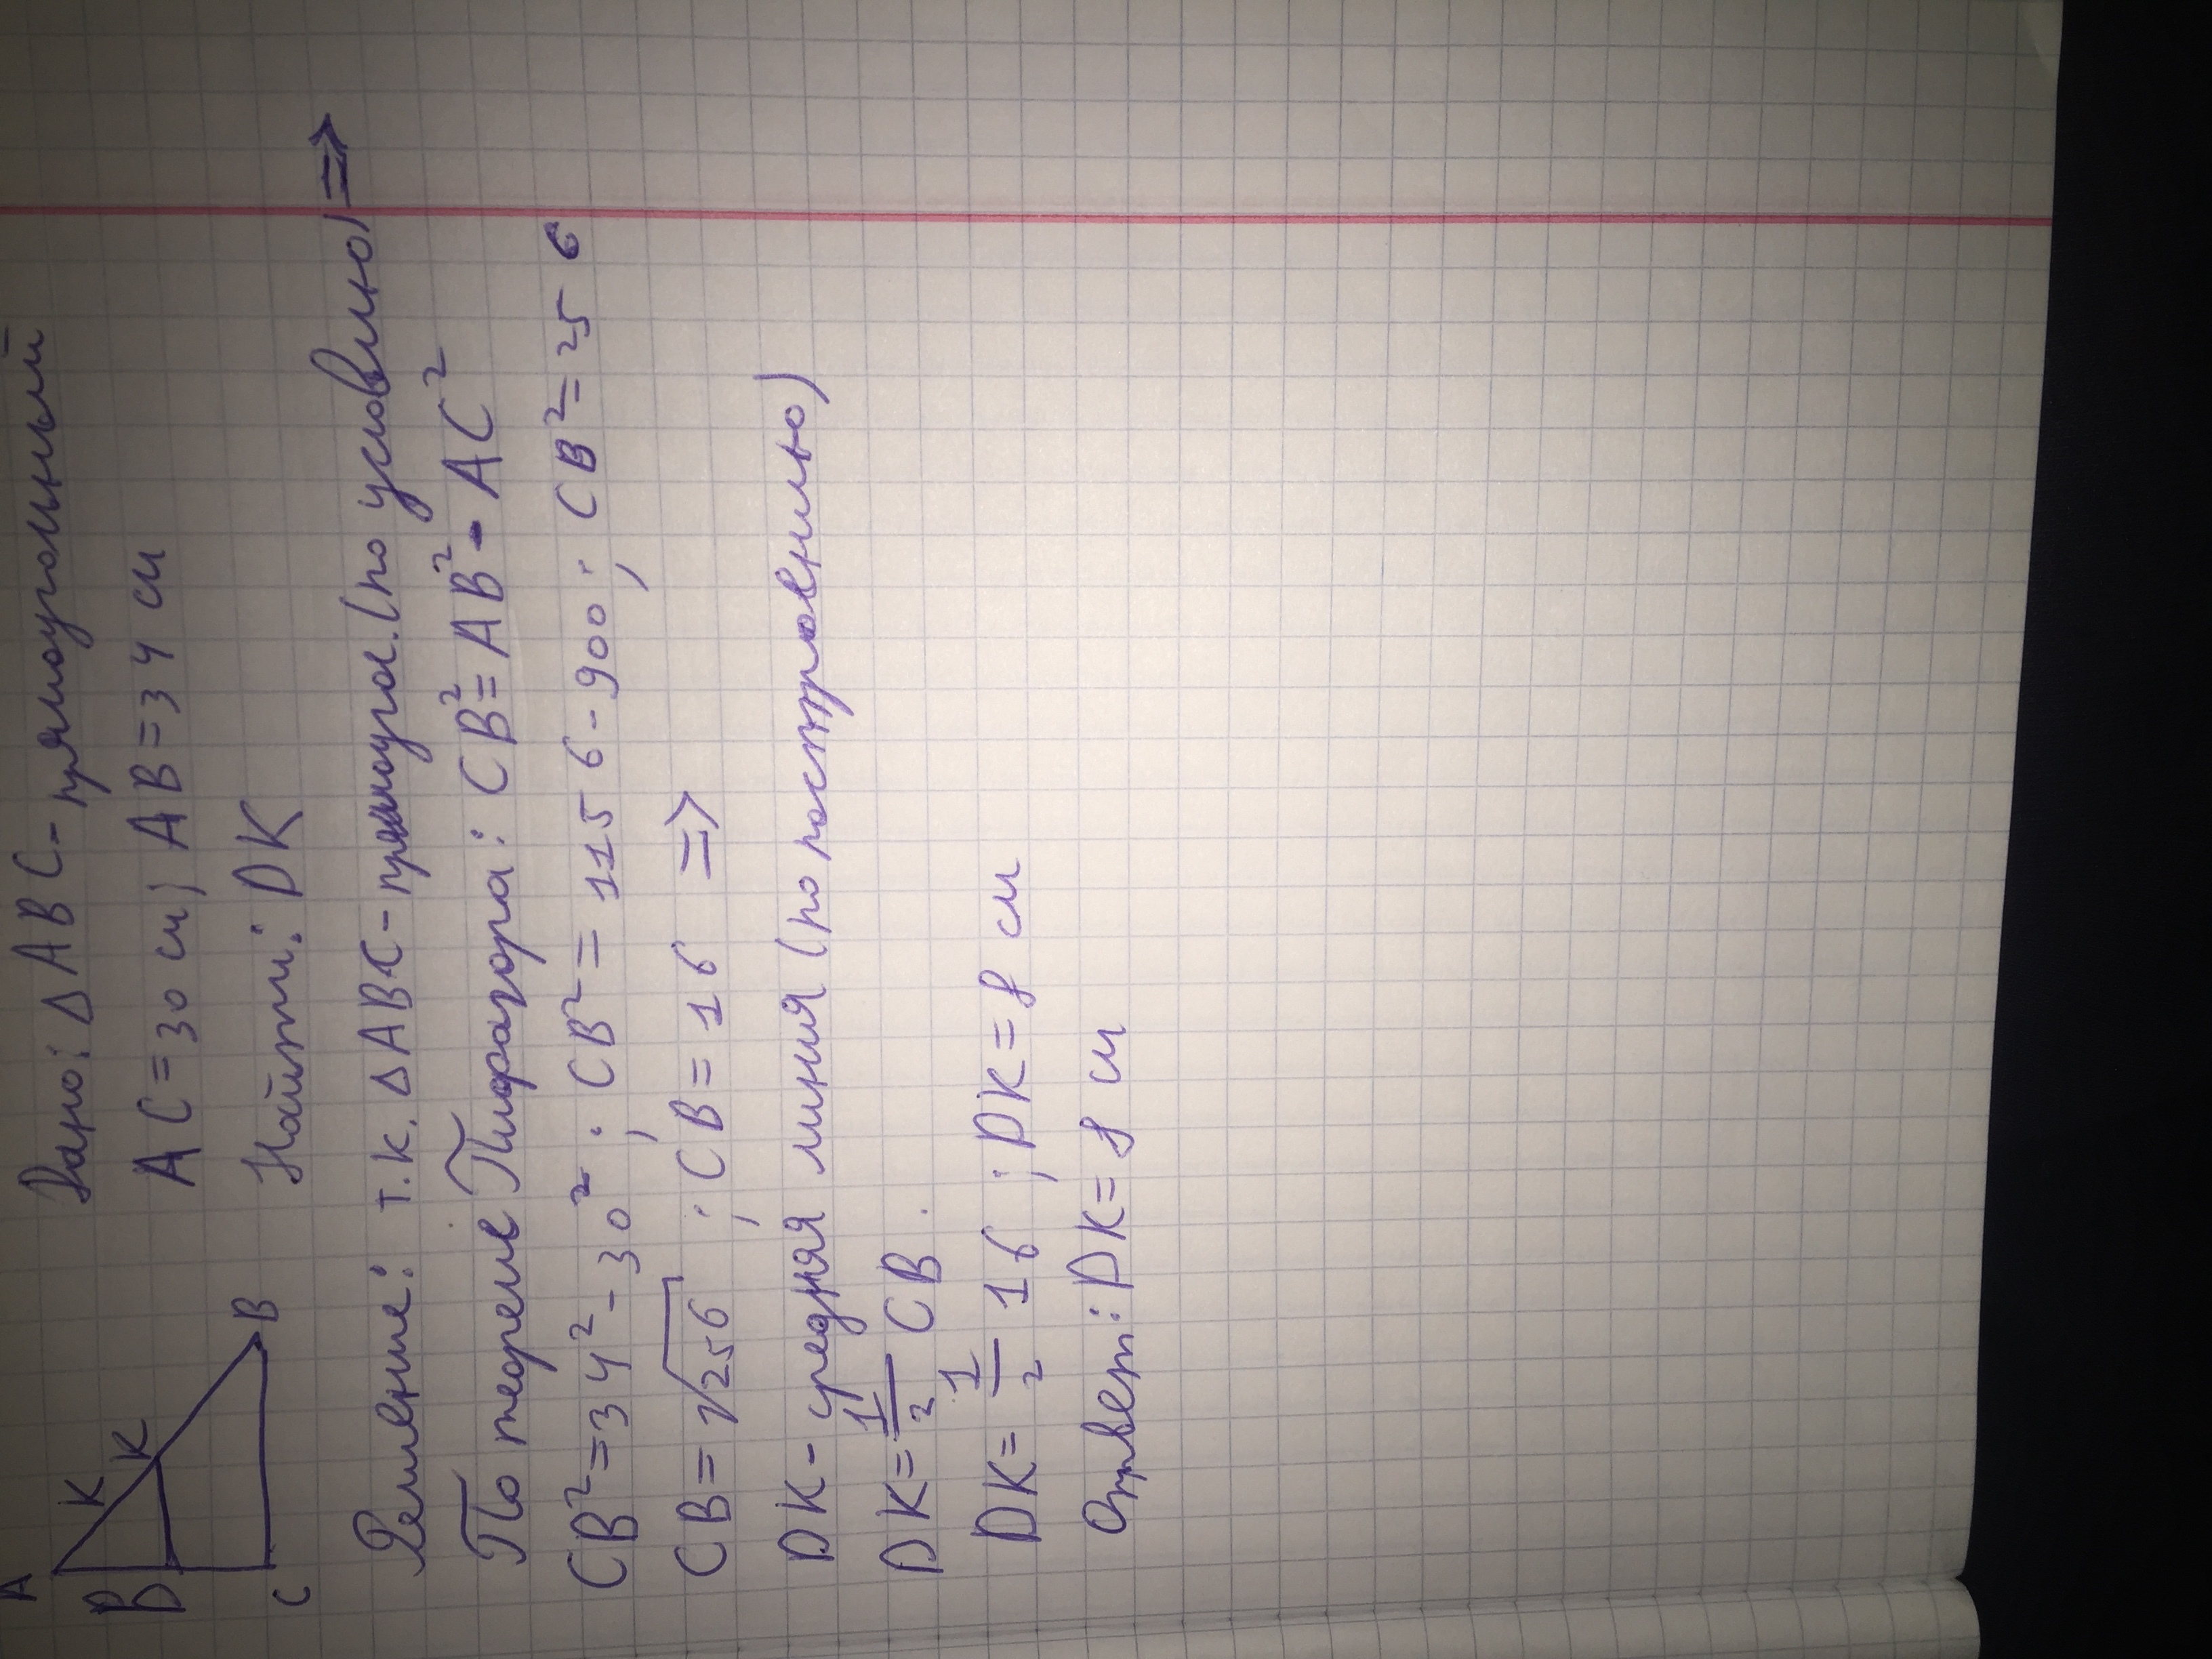 Дано: Δ ABC - прямоугольный
AC = 30 см; AB = 34 см
Найти: DK
A
K
D
K
C
B
Решение: т.к. Δ ABC - прямоугол. (по условию) =>
По теореме Пифагора: CB² = AB² - AC²
CB² = 34² - 30²; CB² = 1156 - 900; CB² = 256
CB = √256 ; CB = 16 =>
DK - средняя линия (по построению)
DK = 1/2 CB.
DK = 1/2 16 ; DK = 8 см
Ответ: DK = 8 см